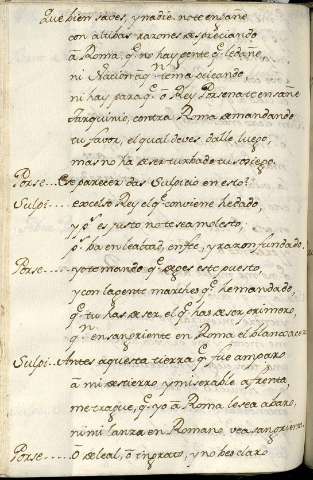 que bien sabes, y nadie no te engañe
con altibas razones despreciando
a Roma, q̃ no hay gente q̃ le dañe,
ni Nacion aq̃ⁿ tema peleando
ni hay para q̃ ô Rey Porsena te ensañe
Tarquinio, contra Roma demandando
tu favor, el qual deves dalle luego,
mas no ha de ser turbado tu sosiego.
Porse.. Ese parecer das Sulpicio en esto?
Sulpi.... excelso Rey el q̃ conviene he dado,
y pˢ es justo no te sea molesto,
pˢ. ba en lealtad, en fee, y razon fundado.
Porse.... yo te mando q̃ dejes este puesto,
y con la gente marches q̃ he mandado,
q̃ tu has de ser el q̃ has de ser primero,
qⁿ ensangriente en Roma el blanco acer
Sulpi.. Antes aquesta tierra q̃ fue amparo
a mi destierro y miserable afrenta,
me trague, q̃ yo a Roma le sea abaro,
ni mi lanza en Romano vea sangrienta.
Porse..... O desleal, ô ingrato, y no hes claro